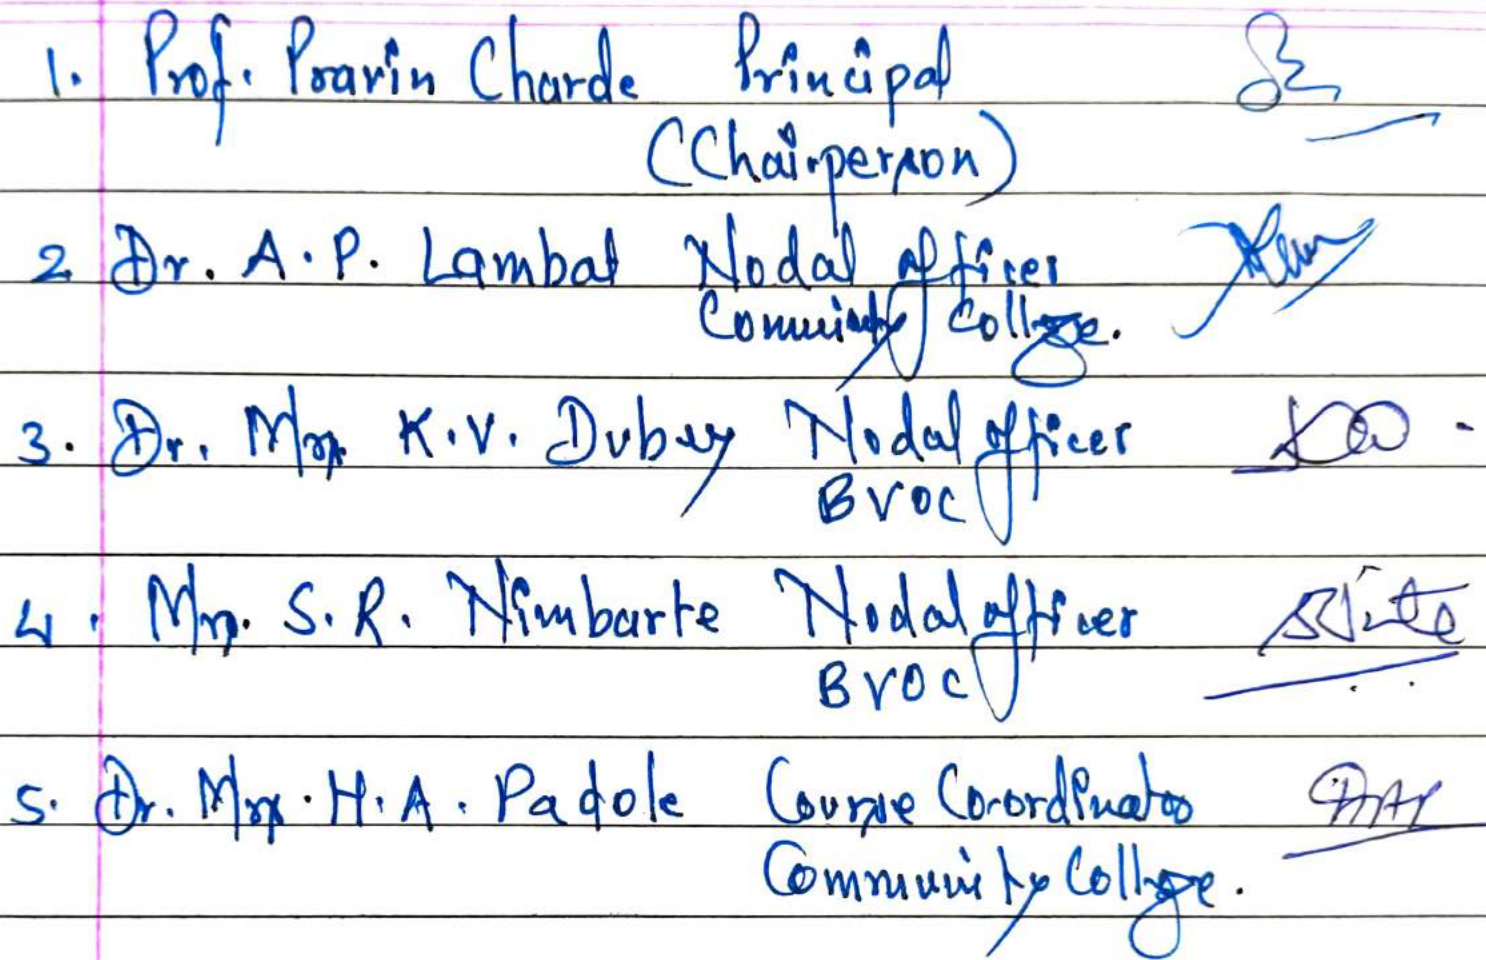 1. Prof. Pravin Charde Principal
(Chairperson)
2 Dr. A.P. Lambat Nodal officer
Community College.
3. Dr. Mrs. K.V. Dubey Nodal officer
BVOC
4. Mrs. S.R. Nimbarte Nodal officer
BVOC
5. Dr. Mrs. H.A. Padole Course Co-ordinator
Community College.